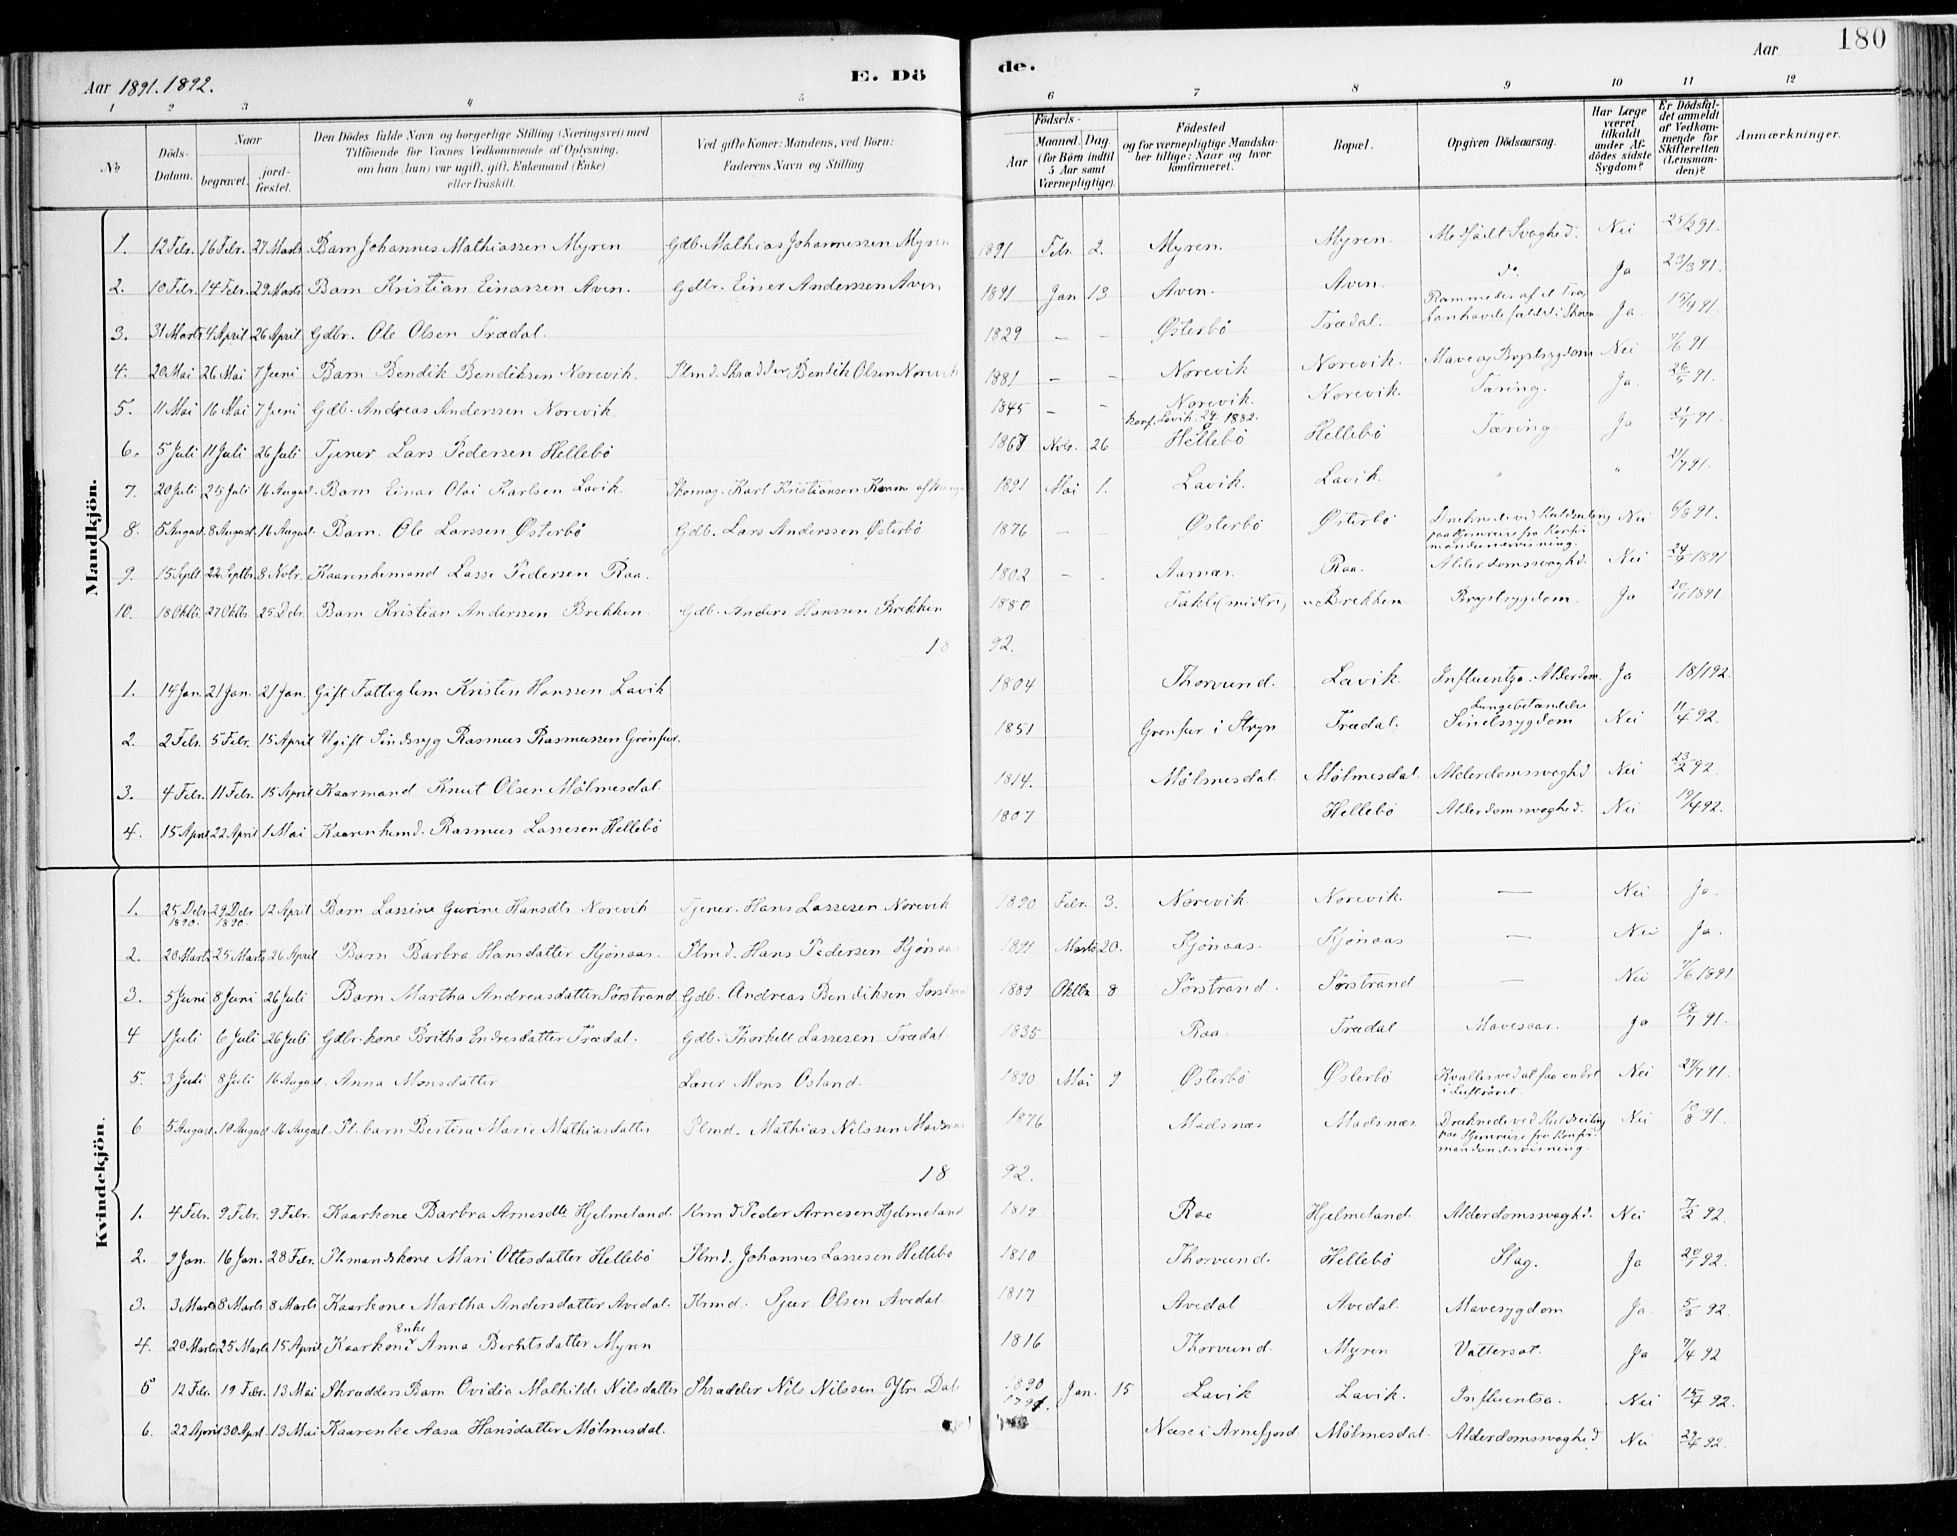 180
Aar 1891. 1892. E. Dö de. Aar
1 2 3 4 5 6 7 8 9 10 11 12
No Döds-Datum. Naar begravet. jordfæstet. Den Dödes fulde Navn og borgerlige Stilling (Næringsvei) med Tilföiende for Voxnes Vedkommende af Oplysning, om han (hun) var ugift, gift, Enkemand (Enke) eller fraskilt. Ved gifte Koner: Mandens, ved Börn: Faderens Navn og Stilling. Födsels- Aar Maaned. Dag (for Börn indtil 5 Aar samt Værnepligtige). Födested og for værnepligtige Mandskaber tillige: Naar og hvor konfirmeret. Bopæl. Opgiven Dödsaarsag. Har Læge været tilkaldt under Afdödes sidste Sygdom? Er Dödsfaldet anmeldt af Vedkommende for Skifteretten (Lensmanden)? Anmærkninger.
Mandkjön.
1. 12 Febr. 16 Febr. 27 Marts Barn Johannes Mathiassen Myren Gdb. Mathias Johannessen Myren 1891 Febr. 2. Myren. Myren. Medfødt Svaghed. Nei 25/2 91.
2. 10 Febr. 14 Febr. 29 Marts Barn Kristian Einarsen Aven. Gdbr. Einar Anderssen Aven 1891 Jan 13 Aven. Aven. do. Ja 23/3 91.
3. 31 Marts 4 April 26 April Gdbr. Ole Olsen Trædal. 1829 – – Østerbö Trædal. Rammedes af et Træ han havde fældet i Skoven Ja. 15/4 91.
4. 20 Mai 26 Mai 7 Juni Barn Bendik Bendiksen Norevik. Plmd. Skrædder Bendik Olsen Norevik 1881 – – Norevik Norevik. Mave og Brystsygdom Nei 7/6 91
5. 11 Mai 16 Mai 7 Juni Gdb. Andreas Anderssen Norevik. 1845 – – Norevik. Norevik. Tæring. Ja. 26/5 91.
6. 5 Juli 11 Juli 26 Juli Tjener Lars Pedersen Hellebö 1867 Novbr. 26 Konf. Lavik 1882. Hellebö Hellebö Tæring. Ja 21/7 91.
7. 20 Juli 25 Juli 16 August. Barn Einar Olai Karlsen Lavik. Skomag. Karl Kristiansen Kvam 1891 Mai 1. Lavik. Lavik. " " 21/7 91.
8. 5 August 8 August. 16 August. Barn. Ole Larssen Østerbö Gdb. Lars Anderssen Østerbö 1876 – – Østerbö Østerbö Druknede ved Kuldseiling paa Hjemreise fra Konfirmandundervisning. Nei 6/8 91.
9. 15 Septb 22 Septbr. 8 Novbr. Kaarenkemand Lasse Pedersen Raa. 1802 – – Aarnæs. Raa. Alderdomssvaghed. Nei 24/9 1891
10. 18 Oktbr 27 Oktbr. 25 Debr. Barn Kristian Anderssen Brekken. Gdb. Anders Hanssen Brekken 1880 Takle (midtre) Brekken. Brystsygdom. Ja 20/11 1891.
1892.
1. 14 Jan 21 Jan. 21 Jan. Gift Fattiglem Kristen Hanssen Lavik 1804 Thorvund. Lavik. Influentza. Alderdom Ja 18/1 92.
2. 2 Febr. 5 Febr. 15 April Ugift Sindssyg Rasmus Rasmussen Grönfur. 1851 Grønfur i Stryn Trædal. Lungebetændelse Sindssygdom Nei 11/4 92.
3. 4 Febr. 11 Febr. 15 April Kaarmand Knut Olsen Mølmesdal. 1814. Mølmesdal. Mølmesdal. Alderdomssvaghd Nei 23/2 92.
4. 15 April 22 April 1 Mai Kaarenkemd. Rasmus Lassesen Hellebö 1807 Hellebö Alderdomssvaghed. Nei 19/4 92.
Kvindekjön.
1. 25 Debr 1890. 29 Debr 1890. 12 April Barn Lassine Gurine Hansdtr Norevik Tjener. Hans Lassesen Norevik 1890 Febr. 3. Norevik. Norevik. — Nei Ja.
2. 20 Marts 25 Marts 26 April Barn Barbra Hansdatter Hjønaas. Plmd. Hans Pedersen Hjønaas 1891 Marts 20. Hjønaas. Hjønaas — Nei Ja.
3. 5 Juni 8 Juni 26 Juli Barn Martha Andreasdatter Sørstrand Gdb. Andreas Bendiksen Sørstrand 1889 Oktbr 8 Sørstrand. Sørstrand — Nei 7/6 1891
4 1 Juli 6 Juli 26 Juli Gdbr. kone Britha Endresdatter Trædal. Gdb. Thorkell Lassesen Trædal. 1835 Raa. Trædal Mavesaar. Ja 18/7 91.
5. 3 Juli 8 Juli 16 August. Anna Monsdatter Lærer Mons Ostand. 1890 Mai 9 Østerbö Østerbö Kvaltes ved at faa en Ært i Luftrøret. Nei 27/7 91.
6 5 August 10 August 16 August. Pl. barn Bertina Marie Mathiasdatter Plmd. Mathias Nilssen Madsnæs 1876 Madsnæs Madsnæs Druknede ved Kuldseiling paa Hjemreise fra Konfirmandundervisning. Nei 10/8 91.
1892.
1. 4 Febr. 9 Febr. 9 Febr. Kaarkone Barbra Arnesdtr Hjelmeland. Krmd Peder Arnesen Hjelmeland 1819 Raa Hjelmeland. Alderdomssvaghd. Nei 7/2 92.
2. 9 Jan. 16 Jan. 28 Febr. Plmandskone Mari Ottesdatter Hellebö Plmd. Johannes Lassesen Hellebö 1810 Thorvund. Hellebö Slag. Ja 20/1 92.
3. 3 Marts 8 Marts 8 Marts Kaarkone Martha Andersdatter Avedal. Krmd. Sjur Olsen Avedal 1817 Avedal Avedal. Mavesygdom Ja. 5/3 92.
4. 20 Marts 25 Marts 15 April Kaarkone Enke Anna Berntsdatter Myren 1816 Thorvund. Myren Vattersot. Ja 7/4 92
5 12 Febr. 19 Febr. 13 Mai Skrædders Barn Ovidia Mathilde Nilsdatter Skrædder Nils Nilssen Ytre Dal 1890 Jan. 15 Lavik Lavik. Influentsa. Nei 15/4 92.
6. 22 April 30 April. 13 Mai Kaarenke Aasa Hansdatter Mølmesdal. 1791. Næse i Arnefjord Mølmesdal. Alderdomssvaghed. Nei 29/4 92.